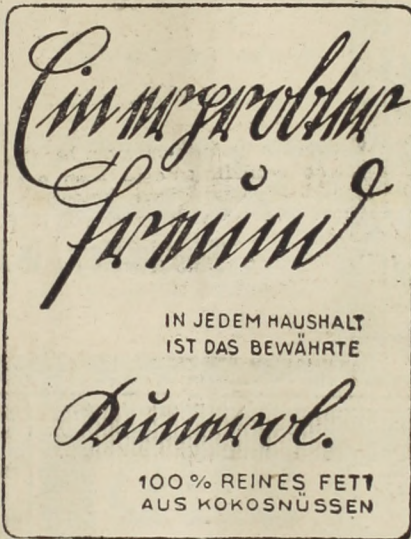 Ein erprobter
Freund
IN JEDEM HAUSHALT
IST DAS BEWÄHRTE
Kunerol.
100% REINES FETT
AUS KOKOSNÜSSEN